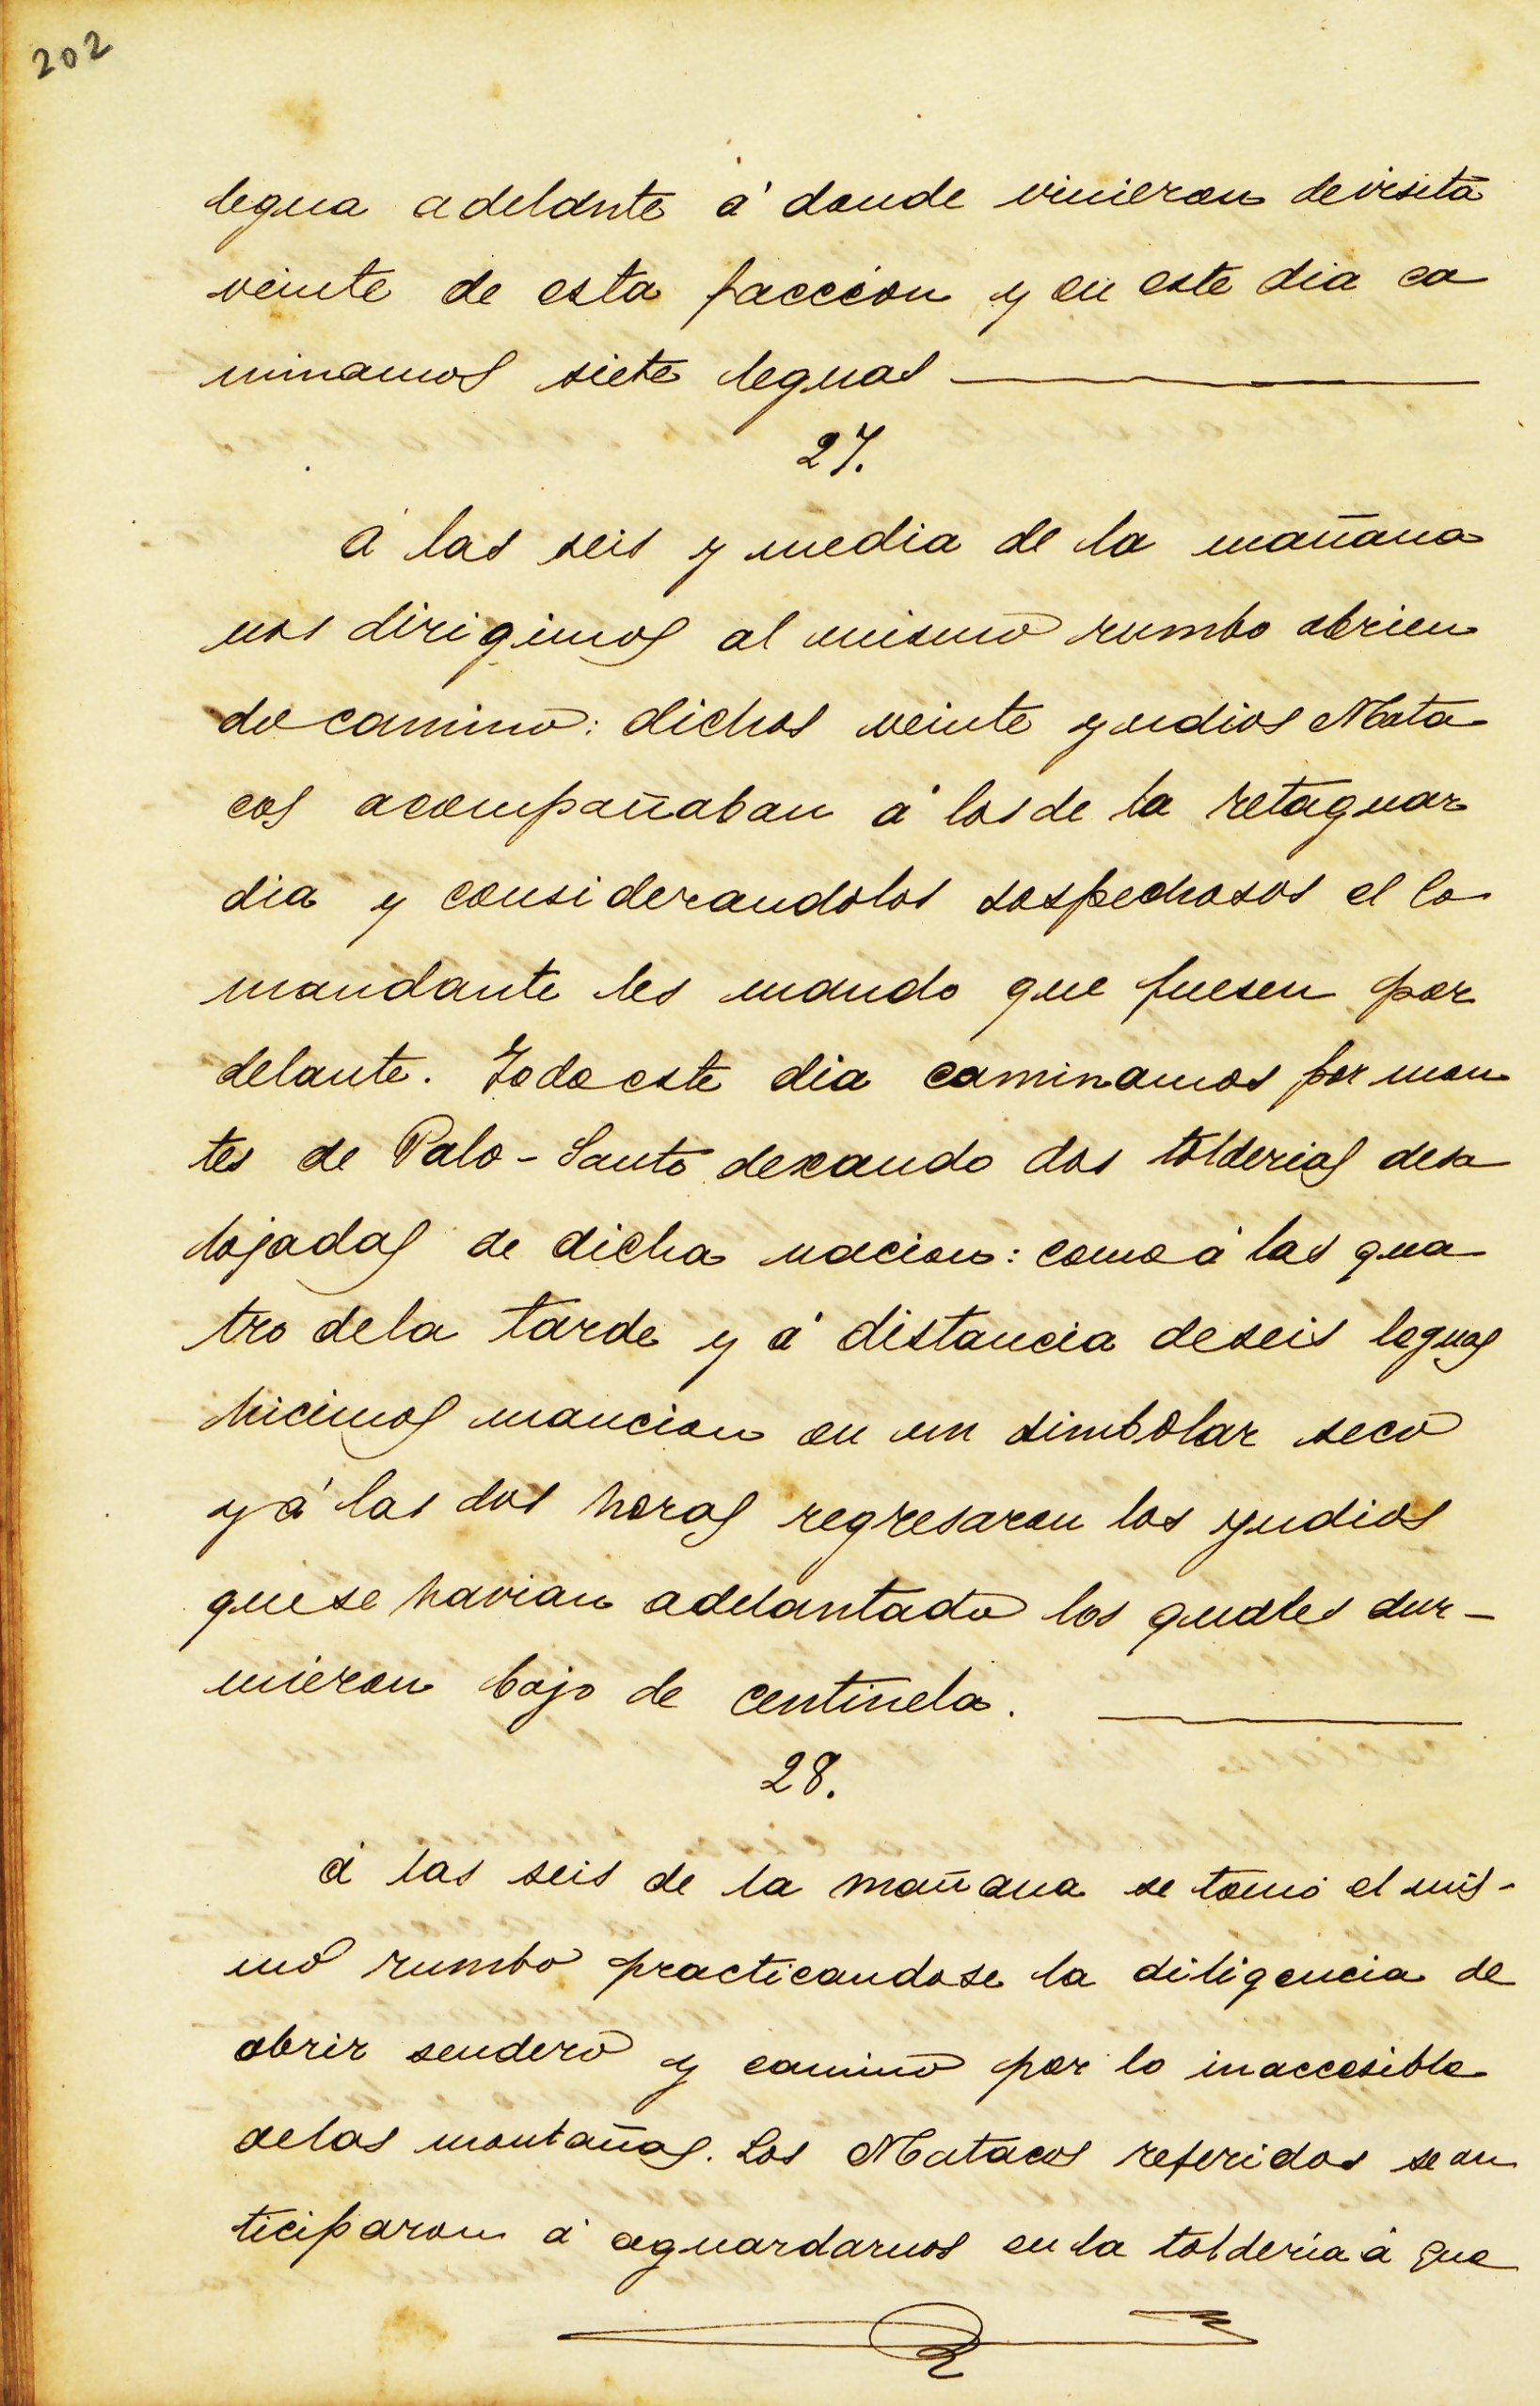 202
legua adelante á donde vinieron de visita
veinte de esta faccion y en este dia ca
minamos siete leguas
27.
á las seis y media de la mañana
nos dirigimos al mismo rumbo abrien
do camino: dichos veinte yndios Mata
cos acompañaban á los de la retaguar
dia y considerandolos sospechosos el Co
mandante les mando que fuesen por
delante. Todo este dia caminamos por mon
tes de Palo-Santo dexando dos tolderias desa
lojadas de dicha nacion: como á las qua
tro de la tarde y á distancia de seis leguas
hicimos mancion en un simbolar seco
y á las dos horas regresaron los yndios
que se havian adelantado los quales dur-
mieron bajo de centinela.
28.
á las seis de la mañana se tomó el mis-
mo rumbo practicandose la diligencia de
abrir sendero y camino por lo inaccesible
de las montañas. Los Matacos referidos se an
ticiparon á aguardarnos en la tolderia á que